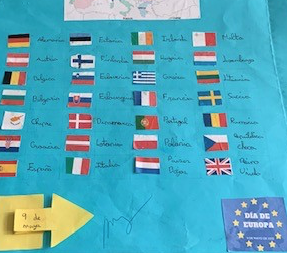 Alemania
Estonia
Irlanda
Malta
Austria
Finlandia
Hungría
Luxemburgo
Bélgica
Eslovenia
Grecia
Lituania
Bulgaria
Francia
Suecia
Chipre
Dinamarca
Portugal
Rumanía
Croacia
Letonia
Polonia
República
checa
España
Italia
Países
Bajos
Reino
Unido
9 de
mayo
DÍA DE
EUROPA